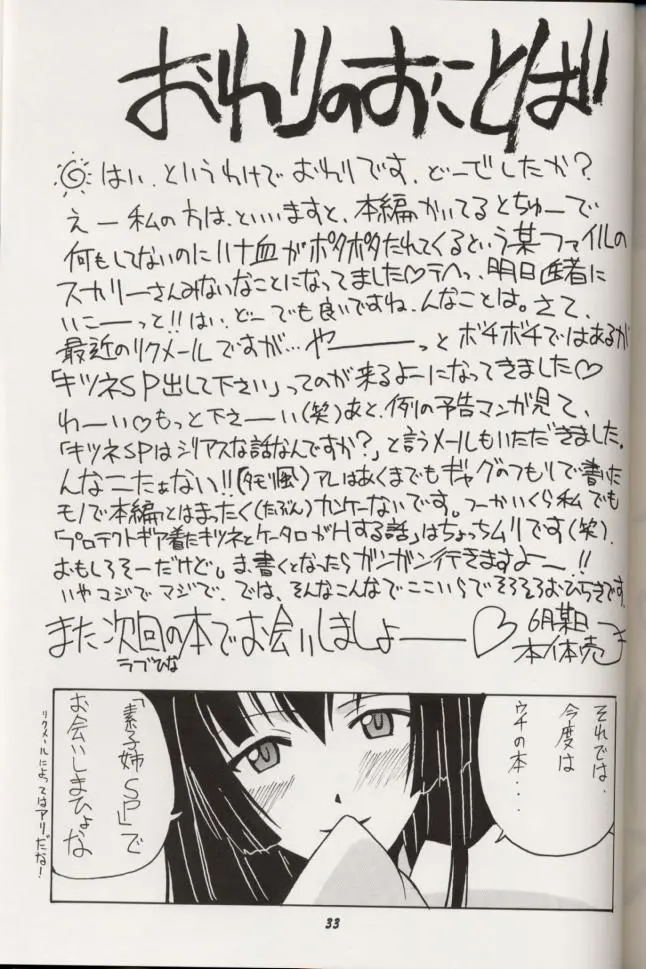 おわりのおことば
はい、というわけで おわりです。どーでしたか?
えー 私の方は、といいますと、本編かいてるとちゅーで
何もしてないのにハナ血がポタポタたれてくるという某ファイルの
スカリーさんみないなことになってました♡テヘっ、明日医者に
いこーーっと!!はい、どーでも良いですね、んなことは。さて、
最近のリクメールですが…やーーーっとボチボチではあるが
「キツネSP出して下さい」ってのが来るよーになってきました♡
わーい♡もっと下さーい(笑)あと、例の予告マンガ見て、
「キツネSPはシリアスな話なんですか?」と言うメールもいただきました。
んなこたぁない!!(タモリ風)アレはあくまでもギャグのつもりで書いた
モノで本編とはまったく(たぶん)カンケーないです。つーかいくら私でも
「プロテクトギア着たキツネとケータロがHする話」はちょっちムリです(笑)。
おもしろそーだけど。ま、書くとなったらガンガン行きますよー!!
いやマジでマジで。では、そんなこんなでここいらでそろそろおひらきです。
また次回の本でお会いしましょーーー♡
ラブひな
6月某日
本体売
それでは、
今度は
ウチの本・・・
「素子姉SP」で
お会いしまひょな
リクメールによってはアリだな!
33